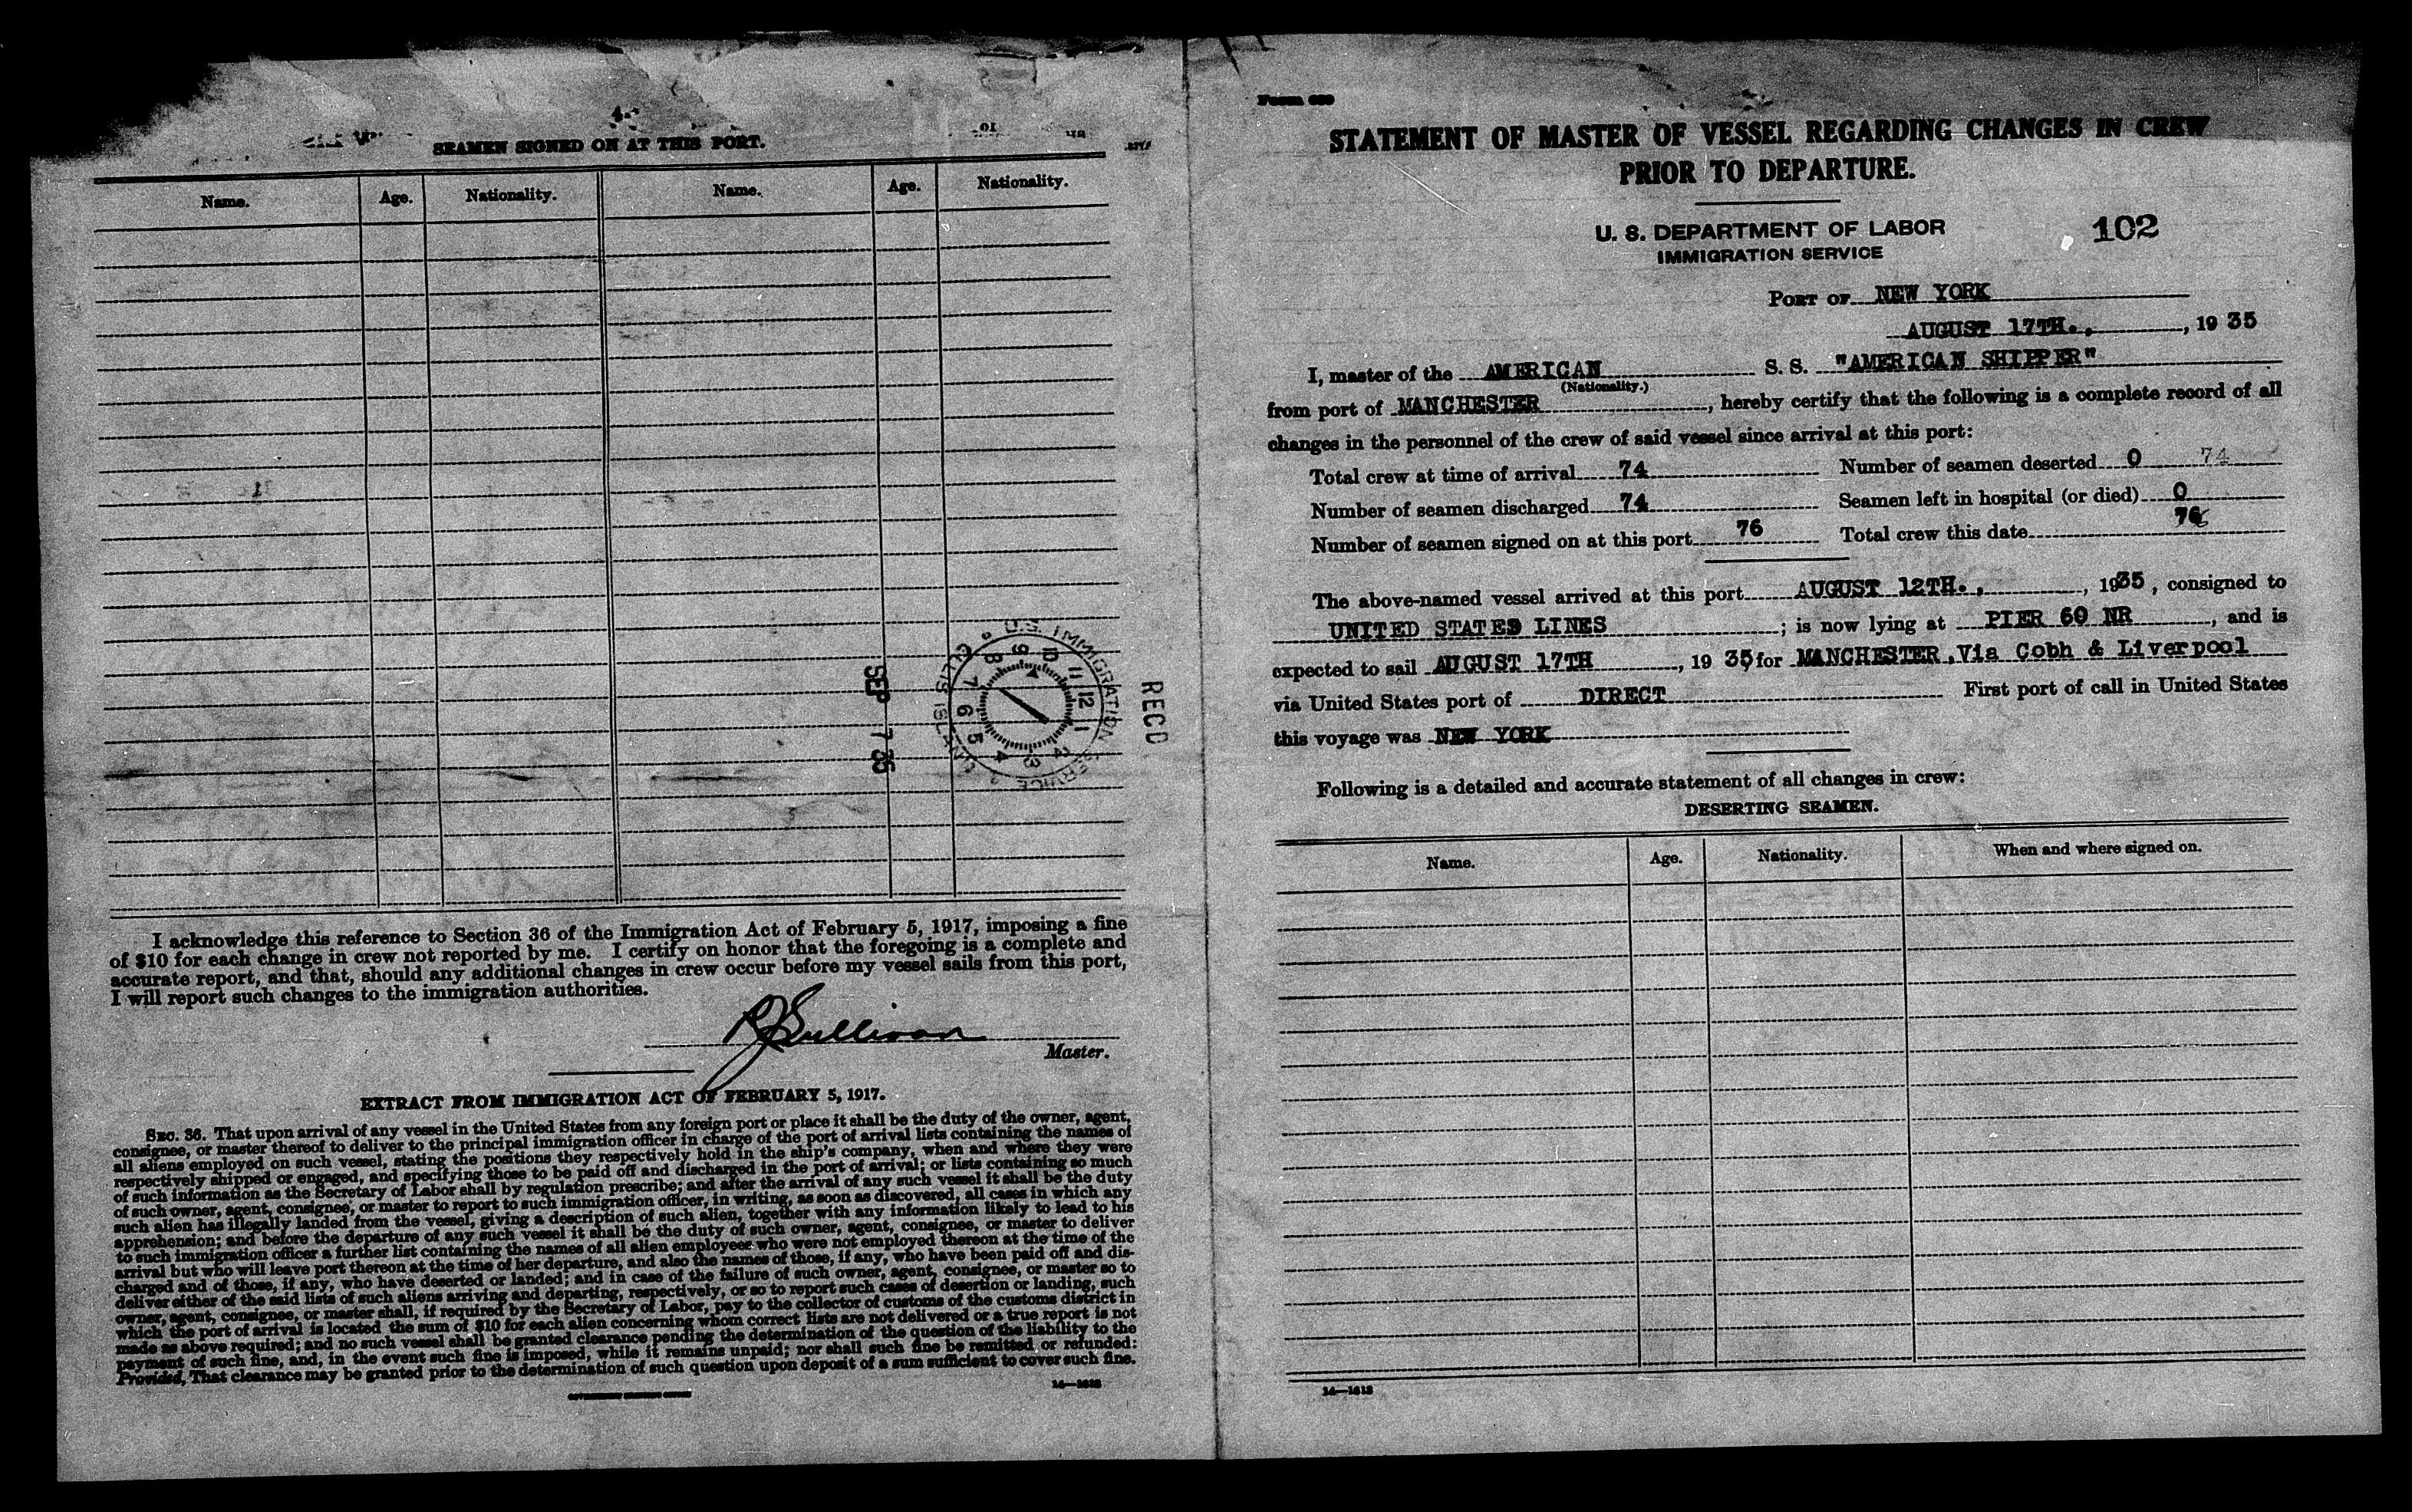 4
SEAMEN SIGNED ON AT THIS PORT.
Name. Age. Nationality. Name. Age. Nationality.
U.S. IMMIGRATION SERVICE
ELLIS ISLAND
1 2 3 4 5 6 7 8 9 10 11 12
SEP 7 35
RECD
I acknowledge this reference to Section 36 of the Immigration Act of February 5, 1917, imposing a fine
of $10 for each change in crew not reported by me. I certify on honor that the foregoing is a complete and
accurate report, and that, should any additional changes in crew occur before my vessel sails from this port,
I will report such changes to the immigration authorities.
RJSullivan
Master.
EXTRACT FROM IMMIGRATION ACT OF FEBRUARY 5, 1917.
SEC. 36. That upon arrival of any vessel in the United States from any foreign port or place it shall be the duty of the owner, agent,
consignee, or master thereof to deliver to the principal immigration officer in charge of the port of arrival lists containing the names of
all aliens employed on such vessel, stating the positions they respectively hold in the ship's company, when and where they were
respectively shipped or engaged, and specifying those to be paid off and discharged in the port of arrival; or lists containing so much
of such information as the Secretary of Labor shall by regulation prescribe; and after the arrival of any such vessel it shall be the duty
of such owner, agent, consignee, or master to report to such immigration officer, in writing, as soon as discovered, all cases in which any
such alien has illegally landed from the vessel, giving a description of such alien, together with any information likely to lead to his
apprehension; and before the departure of any such vessel it shall be the duty of such owner, agent, consignee, or master to deliver
to such immigration officer a further list containing the names of all alien employees who were not employed thereon at the time of the
arrival but who will leave port thereon at the time of her departure, and also the names of those, if any, who have been paid off and dis-
charged and of those, if any, who have deserted or landed; and in case of the failure of such owner, agent, consignee, or master so to
deliver either of the said lists of such aliens arriving and departing, respectively, or so to report such cases of desertion or landing, such
owner, agent, consignee, or master shall, if required by the Secretary of Labor, pay to the collector of customs of the customs district in
which the port of arrival is located the sum of $10 for each alien concerning whom correct lists are not delivered or a true report is not
made as above required; and no such vessel shall be granted clearance pending the determination of the question of the liability to the
payment of such fine, and, in the event such fine is imposed, while it remains unpaid; nor shall such fine be remitted or refunded:
Provided, That clearance may be granted prior to the determination of such question upon deposit of a sum sufficient to cover such fine.
14—1613
Form 689
STATEMENT OF MASTER OF VESSEL REGARDING CHANGES IN CREW
PRIOR TO DEPARTURE.
U. S. DEPARTMENT OF LABOR
IMMIGRATION SERVICE
102
PORT OF NEW YORK
AUGUST 17TH., , 19 35
I, master of the AMERICAN S. S. "AMERICAN SHIPPER"
(Nationality.)
from port of MANCHESTER , hereby certify that the following is a complete record of all
changes in the personnel of the crew of said vessel since arrival at this port:
Total crew at time of arrival 74 Number of seamen deserted 0 74
Number of seamen discharged 74 Seamen left in hospital (or died) 0
Number of seamen signed on at this port 76 Total crew this date 76
The above-named vessel arrived at this port AUGUST 12TH., , 1935, consigned to
UNITED STATES LINES ; is now lying at PIER 60 NR , and is
expected to sail AUGUST 17TH , 19 35 for MANCHESTER, Via Cobh & Liverpool
via United States port of DIRECT First port of call in United States
this voyage was NEW YORK
Following is a detailed and accurate statement of all changes in crew:
DESERTING SEAMEN.
Name. Age. Nationality. When and where signed on.
14—1613